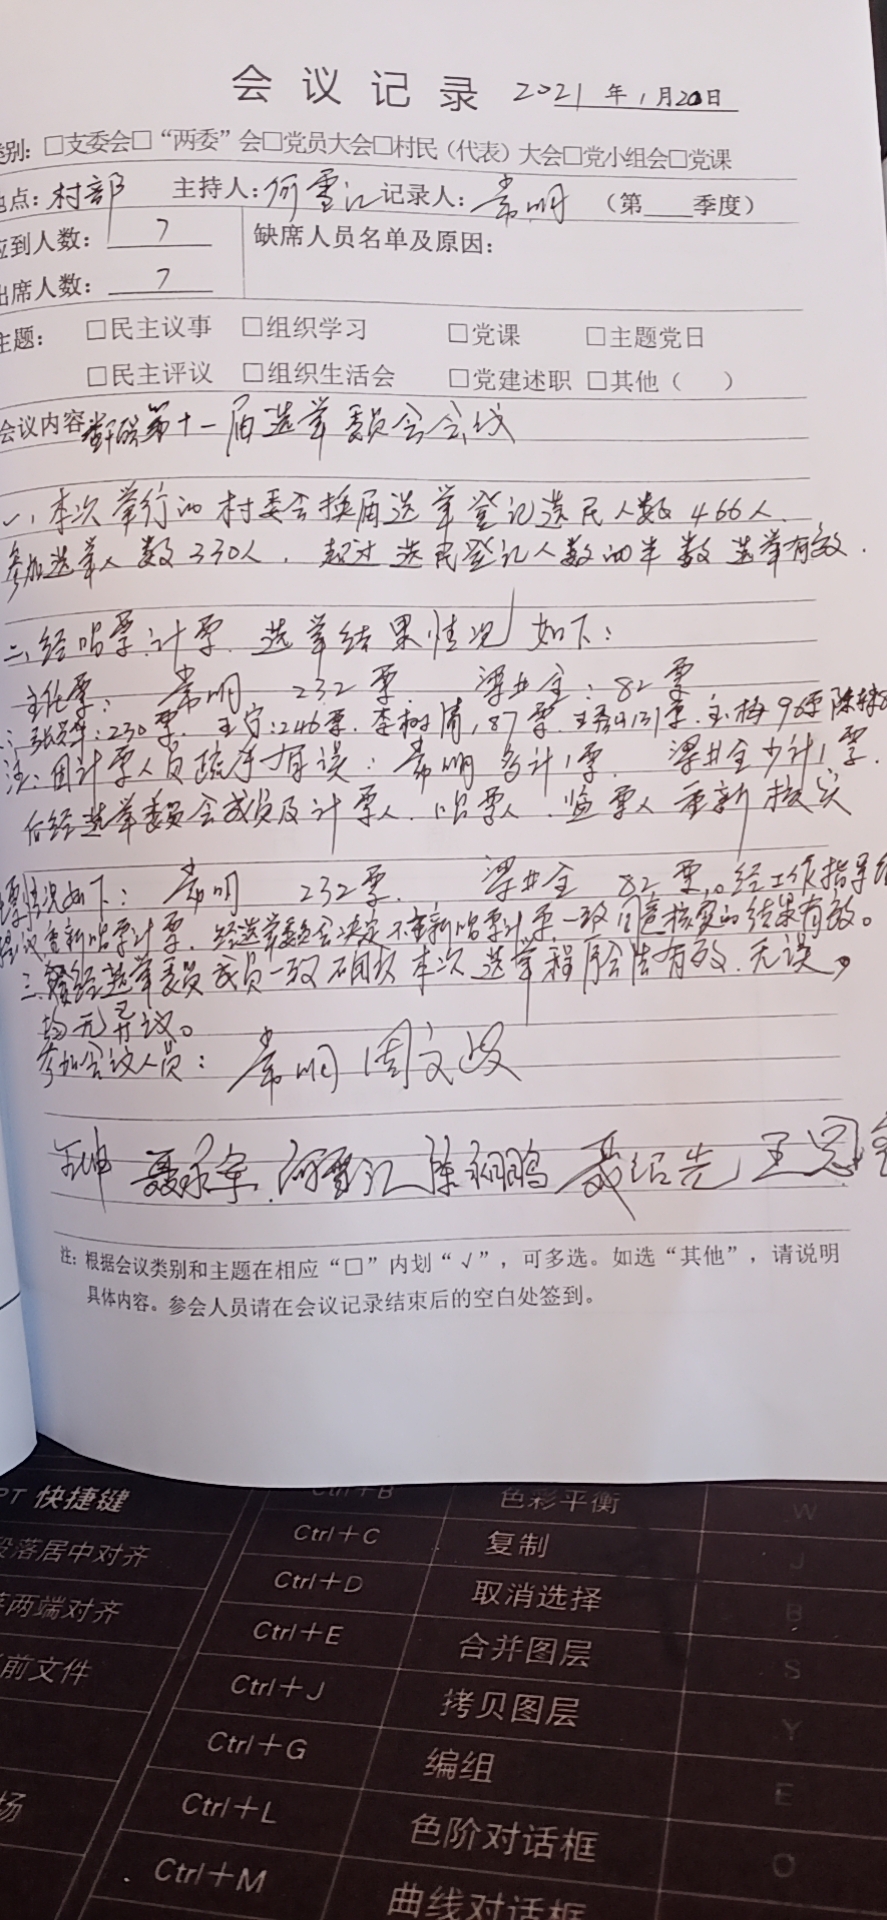 会议记录 2021年1月20日
别: □支委会□“两委”会□党员大会□村民（代表）大会□党小组会□党课
点: 村部 主持人: 何雪江 记录人: 常明 （第___季度）
应到人数: 7 缺席人员名单及原因:
出席人数: 7
主题: □民主议事 □组织学习 □党课 □主题党日
□民主评议 □组织生活会 □党建述职 □其他（ ）
会议内容 第十一届选举委员会会议
一、本次举行的村委会换届选举登记选民人数466人.
参加选举人数330人，超过选民登记人数的半数选举有效.
二、经唱票.计票.选举结果情况如下:
主任票: 常明 232票. 梁业全: 82票
230票. 王宁:246票. 李树清,87票. 131票. 王梅96票
注:因计票人员疏忽有误: 常明多计1票. 梁业全少计1票.
后经选举委员会成员及计票人.唱票人.监票人重新核实
票情况如下: 常明 232票. 梁业全 82票.。经工作指导组
提议重新唱票计票. 经选举委员会决定不重新唱票计票一致同意核实的结果有效。
三、经选举委员成员一致确认本次选举程序合法有效.无误,
均无异议。
参加会议人员: 常明 周文政
聂永军 何雪江 陈 鹏 聂绍先 王
注: 根据会议类别和主题在相应“□”内划“√”，可多选。如选“其他”，请说明
具体内容。参会人员请在会议记录结束后的空白处签到。
PT 快捷键 Ctrl+B 色彩平衡 W
段落居中对齐 Ctrl+C 复制 J
两端对齐 Ctrl+D 取消选择 B
前文件 Ctrl+E 合并图层 S
Ctrl+J 拷贝图层 Y
Ctrl+G 编组 E
场 Ctrl+L 色阶对话框 O
Ctrl+M 曲线对话框